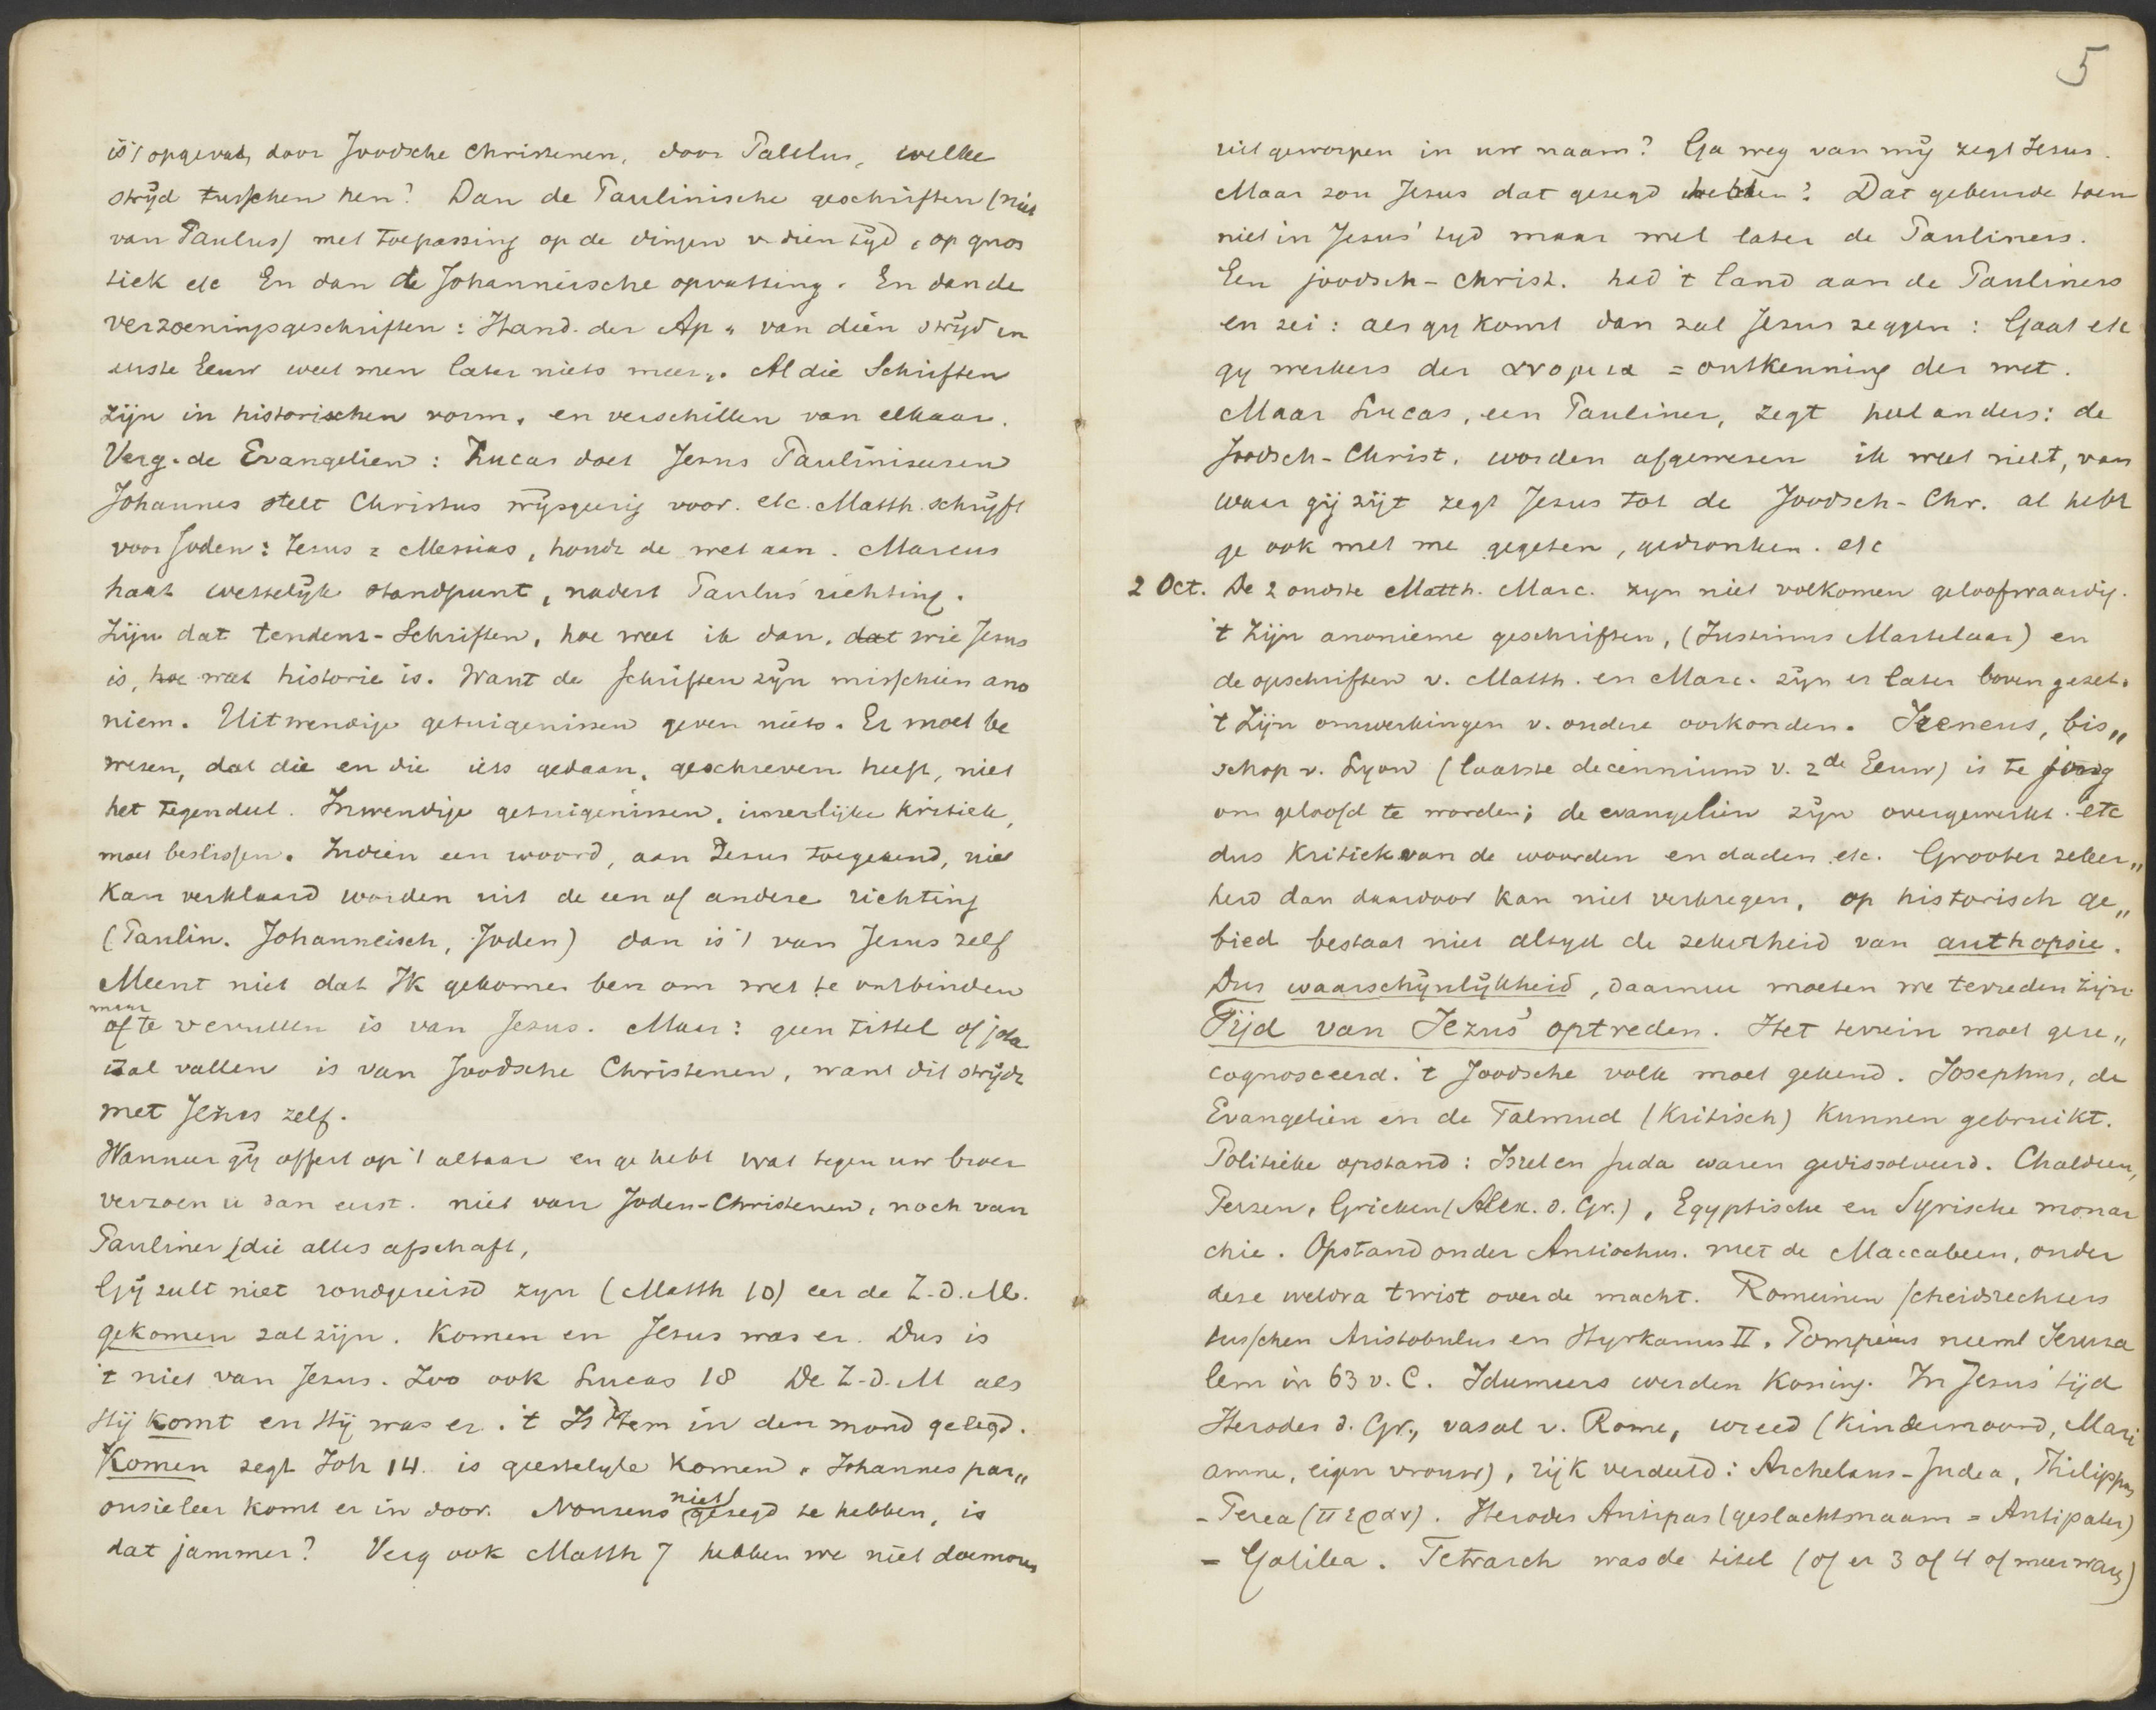 is 't opgevat, door Joodsche Christenen, door Paulus, welke
strijd tusschen hen? Dan de Paulinische geschriften (niet
van Paulus) met toepassing op de dingen v. dien tijd, op gnos
tiek etc En dan de Johanneische opvatting. En dan de
verzoeningsgeschriften: Hand. der Ap „ van dien strijd in
eerste Eeuw weet men later niets meer„. Al die Schriften
zijn in historischen vorm, en verschillen van elkaar.
Verg. de Evangelien: Lucas doet Jesus Pauliniseeren
Johannes stelt Christus wijsgeerig voor. etc. Matth. schrijft
voor Joden: Jesus = Messias, houdt de wet aan. Marcus
haat wettelijk standpunt, nadert Paulus' richting.
Zijn dat tendenz-Schriften, hoe weet ik dan, dat wie Jesus
is, hoe wat historie is. Want de schriften zijn misschien ano
niem. Uitwendige getuigenissen geven niets. Er moet be
wezen, dat die en die iets gedaan, geschreven heeft, niet
het tegendeel. Inwendige getuigenissen, innerlijke kritiek,
moet beslissen. Indien een woord, aan Jesus toegekend, niet
kan verklaard worden uit de een of andere richting
(Paulin. Johanneisch, Joden) dan is 't van Jesus zelf
Meent niet dat Ik gekomen ben om wet te ontbinden
maar
of te vervullen is van Jesus. Maar: geen tittel of jota
zal vallen is van Joodsche Christenen, want dit strijdt
met Jezus zelf.
Wanneer gij offert op 't altaar en ge hebt wat tegen uw broer
verzoen u dan eerst. niet van Joden-Christenen, noch van
Pauliner (die alles afschaft,
Gij zult niet rondgereisd zyn (Matth 10) eer de Z.d.M.
gekomen zal zijn. Komen en Jesus was er. Dus is
't niet van Jesus. Zoo ook Lucas 18 De Z.d.M als
Hij komt en Hij was er. 't Is Hem in den mond gelegd.
Komen zegt Joh 14. is geestelyke komen. Johannes par„
ousieleer komt er in door. Nonsens niet gezegd te hebben, is
dat jammer? Verg ook Matth 7 hebben we niet daemonen
5
uitgeworpen in uw naam? Ga weg van mij zegt Jesus.
Maar zou Jesus dat gezegd hebben? Dat gebeurde toen
niet in Jesus' tyd maar wel later de Pauliners.
Een joodsch-christ. had 't land aan de Pauliners
en zei: als gy komt dan zal Jesus zeggen: Gaat etc
gy werkers der ανομια = ontkenning der wet.
Maar Lucas, een Pauliner, zegt heel anders: de
Joodsch-Christ. worden afgewezen ik weet niet, van
waar gij zijt zegt Jesus tot de Joodsch-Chr. al hebt
ge ook met me gegeten, gedronken. etc
2 Oct. De 2 oudste Matth. Marc. zyn niet volkomen geloofwaardig.
't Zijn anonieme geschriften, (Justinus Martelaar) en
de opschriften v. Matth. en Marc. zijn er later boven gezet.
't Zijn omwerkingen v. oudere oorkonden. Ireneus, bis„
schop v. Lyon (laatste decennium v. 2de Eeuw) is te jong
om geloofd te worden; de evangelien zijn overgewerkt. etc
dus Kritiek van de woorden en daden etc. Grooter zeker„
heid dan daardoor kan niet verkregen, op historisch ge„
bied bestaat niet altyd de zekerheid van authopsie.
Dus waarschynlykheid, daarmee moeten we tevreden zijn
Tijd van Jezus' optreden. Het terrein moet gere„
cognosceerd. 't Joodsche volk moet gekend. Josephus, de
Evangelien en de Talmud (Kritisch) kunnen gebruikt.
Politieke opstand: Isrel en Juda waren gedissolveerd. Chaldeen,
Perzen, Grieken (Alex. d. Gr.), Egyptische en Syrische monar
chie. Opstand onder Antiochus. met de Maccabeen, onder
deze weldra twist over de macht. Romeinen scheidsrechters
tusschen Aristobulus en Hyrkanus II. Pompeius neemt Jeruza
lem in 63 v. C. Idumeers werden Koning. In Jesus' tijd
Herodes d. Gr., vasal v. Rome, wreed (Kindermoord, Mari
amne, eigen vrouw), rijk verdeeld: Archelaus - Judea, Philippus
- Perea (περαν). Herodes Antipas (geslachtsnaam = Antipater)
- Galilea. Tetrarch was de titel (of er 3 of 4 of meer waren)